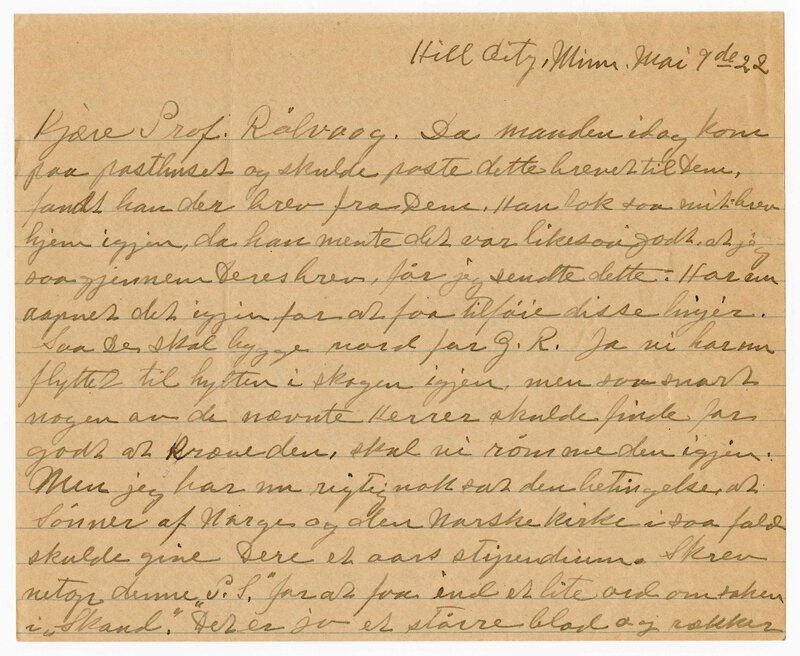 Hill City, Minn. Mai 9de 22
Kjære Prof. Rölvaag. Da manden idag kom
paa posthuset og skulde poste dette brevet til Dem,
fandt han der brev fra Dem. Han tok saa mit brev
hjem igjen, da han mente det var likesaa godt, at jeg
saa gjennem Deres brev, før jeg sendte dette. Har nu
aapnet det igjen for at faa tilföie disse linjer.
Saa De skal bygge nord for G. R. Ja vi har nu
flyttet til hytten i skogen igjen, men saa snart
nogen av de nævnte Herrer skulde finde for
godt at kræve den, skal vi römme den igjen.
Men jeg har nu rigtignok sat den betingelse, at
Sønner af Norge og den Norske kirke i saa fald
skulde give Dere et aars stipendium. Skrev
netop denne "P.S." for at faa ind et lite ord om saken
i "Skand." Det er jo et större blad og rækker